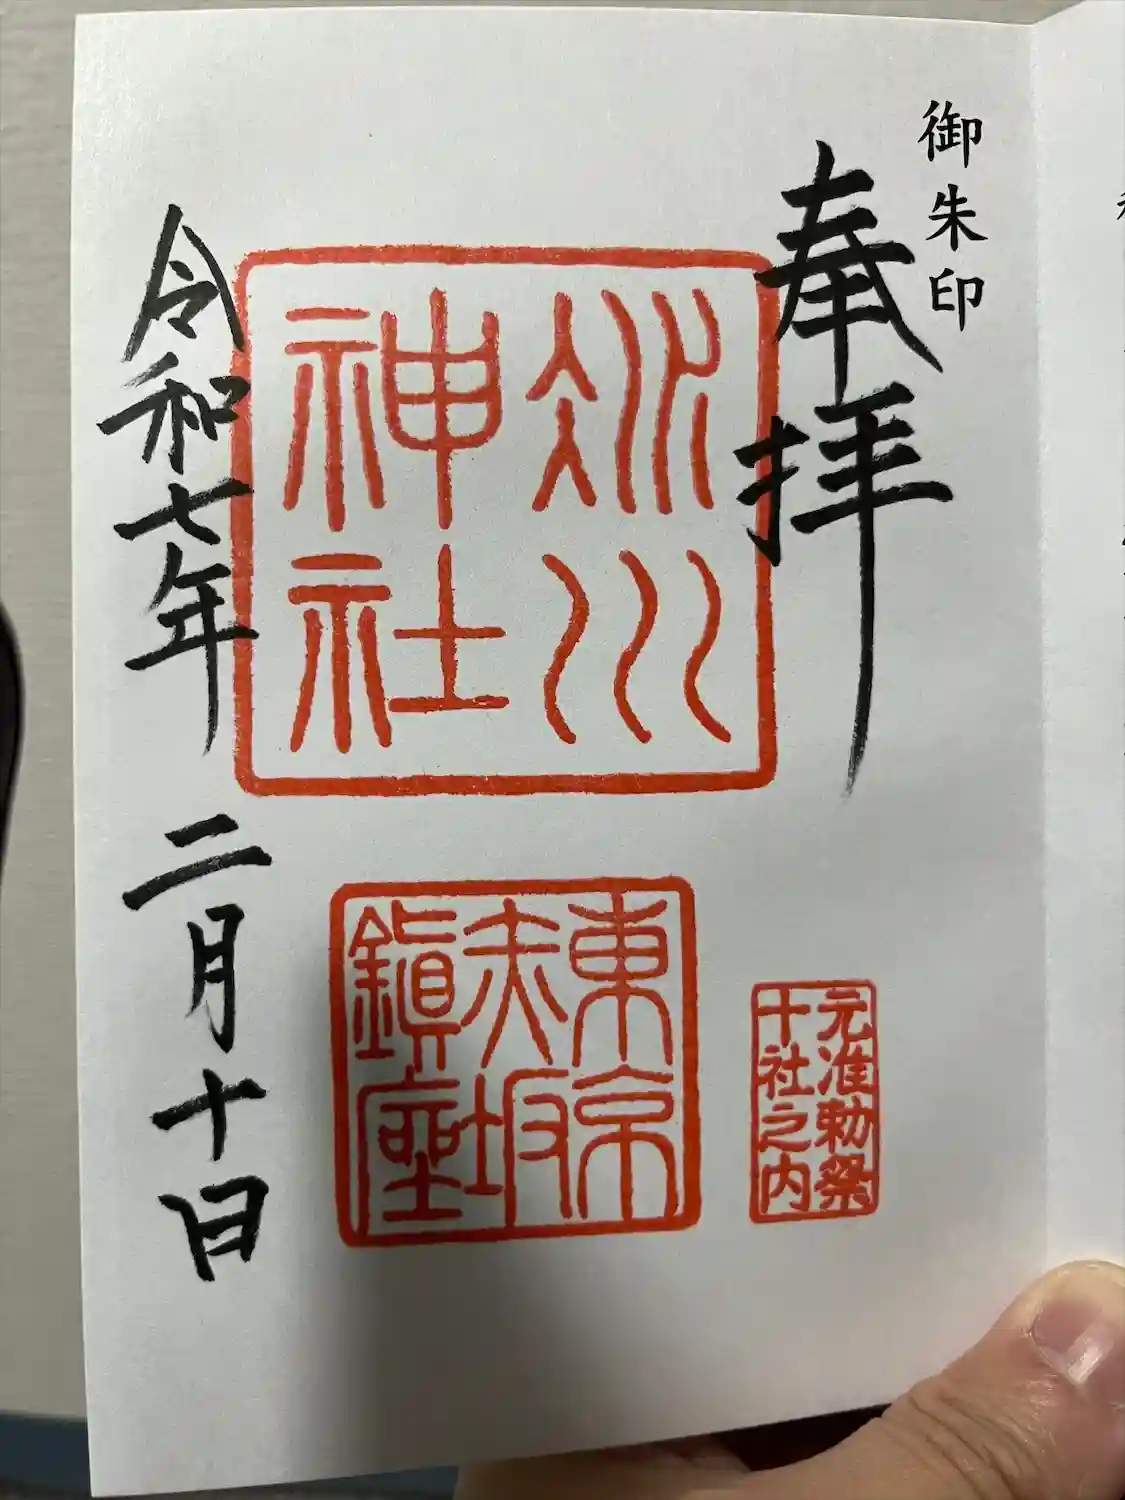 御朱印
奉拝
氷川
神社
東京
赤坂
鎮座
元准勅祭
十社之内
令和七年 二月十日